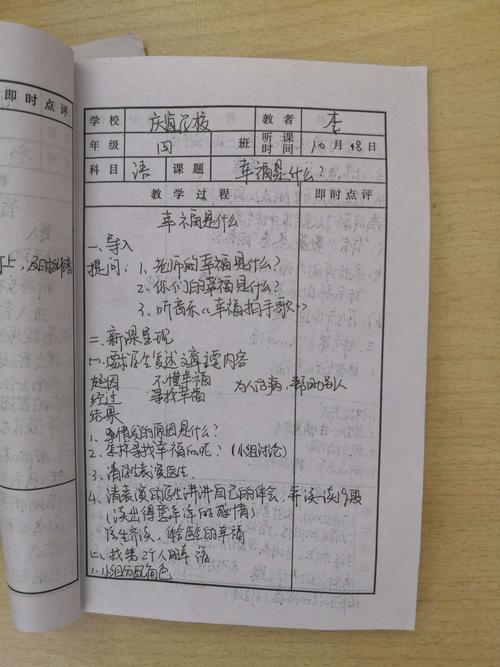 即时点评
学校 庆宿学校 教者 李
年级 四 班 听课时间 10月18日
科目 语 课题 幸福是什么?
教学过程 即时点评
幸福是什么
一、导入
提问:1、老师的幸福是什么?
2、你们的幸福是什么?
3、听音乐《幸福拍手歌》
二、新课呈现
(一)要求学生复述主要内容
起因 不懂幸福 为人治病,帮助别人
经过 寻找幸福
结果
1、事情发的原因是什么?
2、怎样寻找幸福的呢?(小组讨论)
3、请学生表演医生
4、请表演的学生讲讲自己的体会,并读一读19段
(读出得意洋洋的感情)
学生齐读,体会医生的幸福
(二)找第2个人的幸福
1、小组分配角色